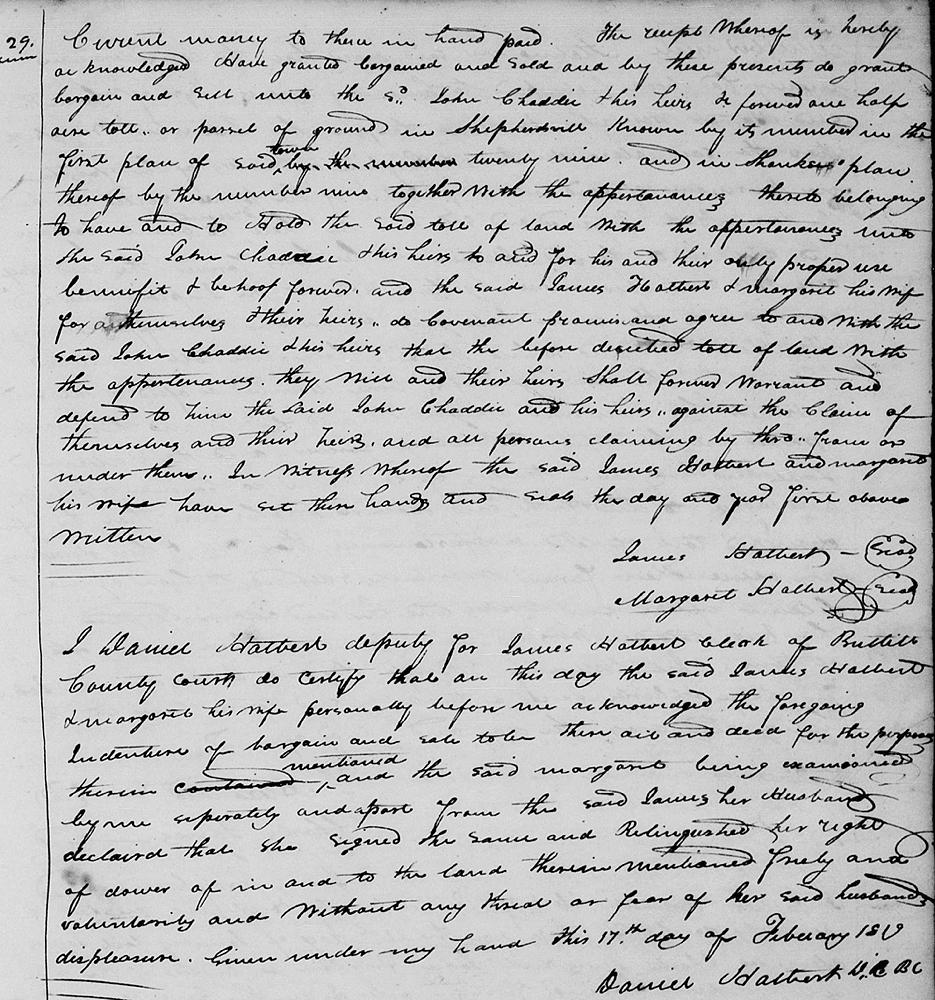 29. Current money to them in hand paid. The receipt Whereof is hereby
acknowledged Have granted bargained and Sold and by these presents do grant
bargain and Sell unto the sd. John Chaddic & his heirs & forever one half
acre lott.. or parsel of ground in Shepherdsvill Known by its number in the
first plan of said town by the number twenty nine. and in Shanks plan
thereof by the number nine together With the appertenances thereto belonging
To have and to Hold the said lott of land With the appertenances unto
the said John Chaddic & his heirs to and for his and their only proper use
bennefit & behoof forever. and the said James Halbert & margaret his wife
for themselves & their heirs.. do Covenant promis and agree to and With the
said John Chaddic & his heirs that the before described lott of land With
the appertenances. they Will and their heirs Shall forever Warrant and
defend to him the said John Chaddic and his heirs.. against the Claim of
themselves and their heirs. and all persons claiming by thro.. from or
under them.. In Witness Whereof the said James Halbert and margaret
his wife have set their hands and seals the day and year first above
Written
James Halbert - Seal
Margaret Halbert - Seal
I Daniel Halbert deputy for James Halbert Clerk of Bullitt
County Court do Certify that on this day the said James Halbert
& margaret his wife personally before me acknowledged the foregoing
Indenture of bargain and sale to be there act and deed for the purposes
mentioned
therein contained and the said margaret being examooned
by me seperately and apart from the said James her Husband
declaird that she signed the same and Relinguished her right
of dower of in and to the land therein mentioned freely and
voluntarily and Without any thread or fear of her said husbands
displeasure. Given under my hand this 17th day of February 1810
Daniel Halbert D. C B C